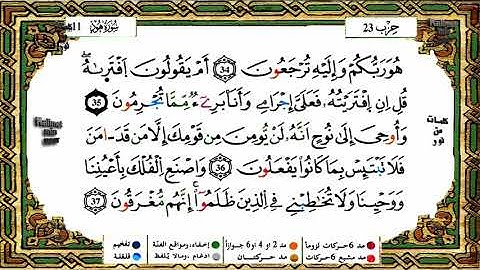 سُورَةُ هُود 11
حِزْب 23
هُوَ رَبُّكُمْ وَإِلَيْهِ تُرْجَعُونَ 34 أَمْ يَقُولُونَ اَفْتَرٰىهُ
قُلِ اِنِ اِفْتَرَيْتُهُ فَعَلَيَّ إِجْرَامِے وَأَنَا بَرِےٓءٌ مِّمَّا تُجْرِمُونَ 35
وَأُوحِيَ إِلَىٰ نُوحٍ اَنَّهُ لَنْ يُّومِنَ مِن قَوْمِكَ إِلَّا مَن قَدَ اٰمَنَ
فَلَا تَبْتَئِسْ بِمَا كَانُوا يَفْعَلُونَ 36 وَاصْنَعِ الْفُلْكَ بِأَعْيُنِنَا
وَوَحْيِنَا وَلَا تُخَٰطِبْنِے فِے اِلذِينَ ظَلَمُوٓا إِنَّهُم مُّغْرَقُونَ 37
كلمات
من
نور
مد 6 حركات لزوماً
مد 2 أو 4 أو 6 جوازاً
إخفاء، ومواقع الغنّة
تفخيم
مد مشبع 6 حركات
مد حركتان
إدغام، وما لا يلفظ
قلقلة